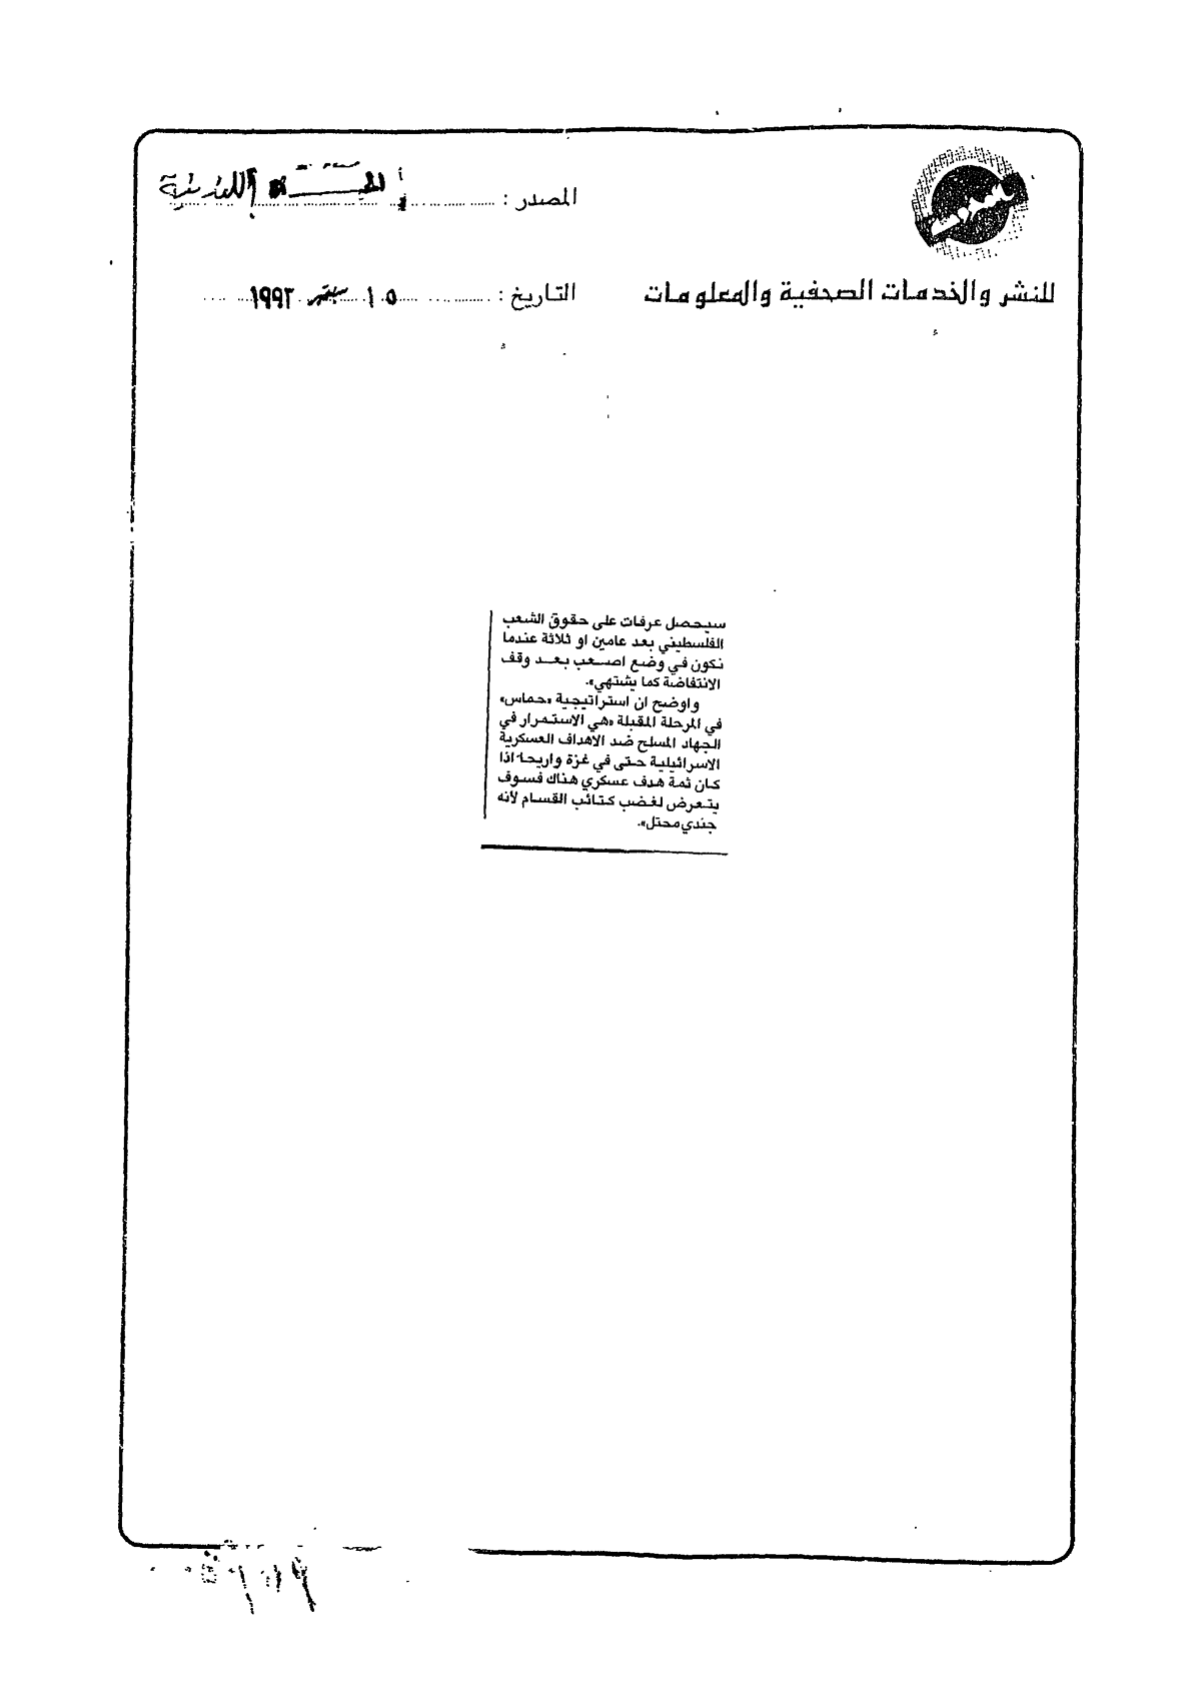 المصدر : الحياة اللندنية
للنشر والخدمات الصحفية والمعلومات
التاريخ : ١٥ سبتمبر ١٩٩٣
سيحصل عرفات على حقوق الشعب
الفلسطيني بعد عامين او ثلاثة عندما
نكون في وضع اصعب بعد وقف
الانتفاضة كما يشتهي».
واوضح ان استراتيجية «حماس»
في المرحلة المقبلة «هي الاستمرار في
الجهاد المسلح ضد الاهداف العسكرية
الاسرائيلية حتى في غزة واريحا اذا
كان ثمة هدف عسكري هناك فسوف
يتعرض لغضب كتائب القسام لأنه
جندي محتل».